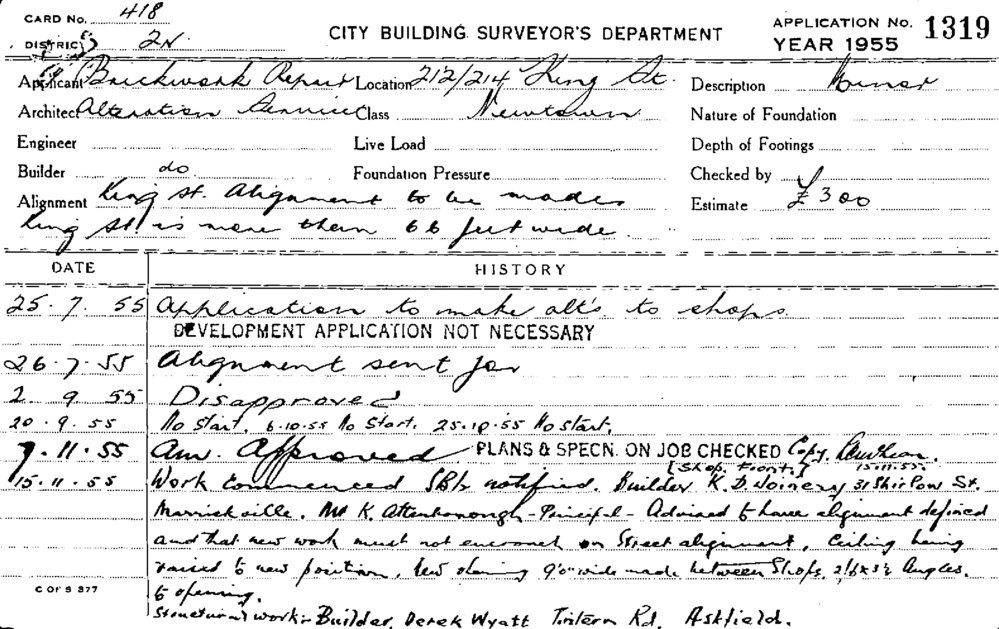 CARD No. 418
DISTRICT 2N.
CITY BUILDING SURVEYOR'S DEPARTMENT
APPLICATION No. 1319
YEAR 1955
Applicant Brickwork Repair Location 212/214 King St. Description Minor
Architect Alteration Service Class Newtown Nature of Foundation
Engineer Live Load Depth of Footings
Builder do Foundation Pressure Checked by
Alignment King St. Alignment to be made Estimate £300
King St is more than 66 feet wide.
DATE HISTORY
25.7.55 Application to make alt's to shops.
DEVELOPMENT APPLICATION NOT NECESSARY
26.7.55 Alignment sent for
2.9.55 Disapproved
20.9.55 No Start. 6.10.55 No Start. 25.10.55 No Start.
7.11.55 Am. Approved PLANS & SPECN. ON JOB CHECKED Copy. 15.11.55.
15.11.55 Work Commenced notified. Builder (Shop Front) K.D. Joinery 31 St.
Marrickville. Mr K. Attenborough - Principal - Advised to have alignment defined
and that new work must not encroach on Street alignment. Ceiling being
raised to new position. New opening 9'0" wide made between Shops. Angles.
to opening.
C OF S 377
Structural work:- Builder. Derek Wyatt Tintern Rd. Ashfield.